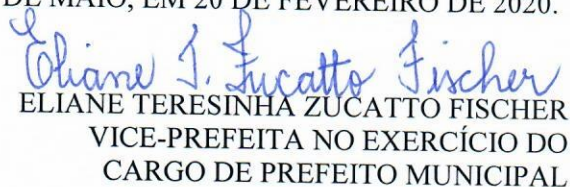 DE MAIO, EM 20 DE FEVEREIRO DE 2020.
Eliane T. Zucatto Fischer
ELIANE TERESINHA ZUCATTO FISCHER
VICE-PREFEITA NO EXERCÍCIO DO
CARGO DE PREFEITO MUNICIPAL